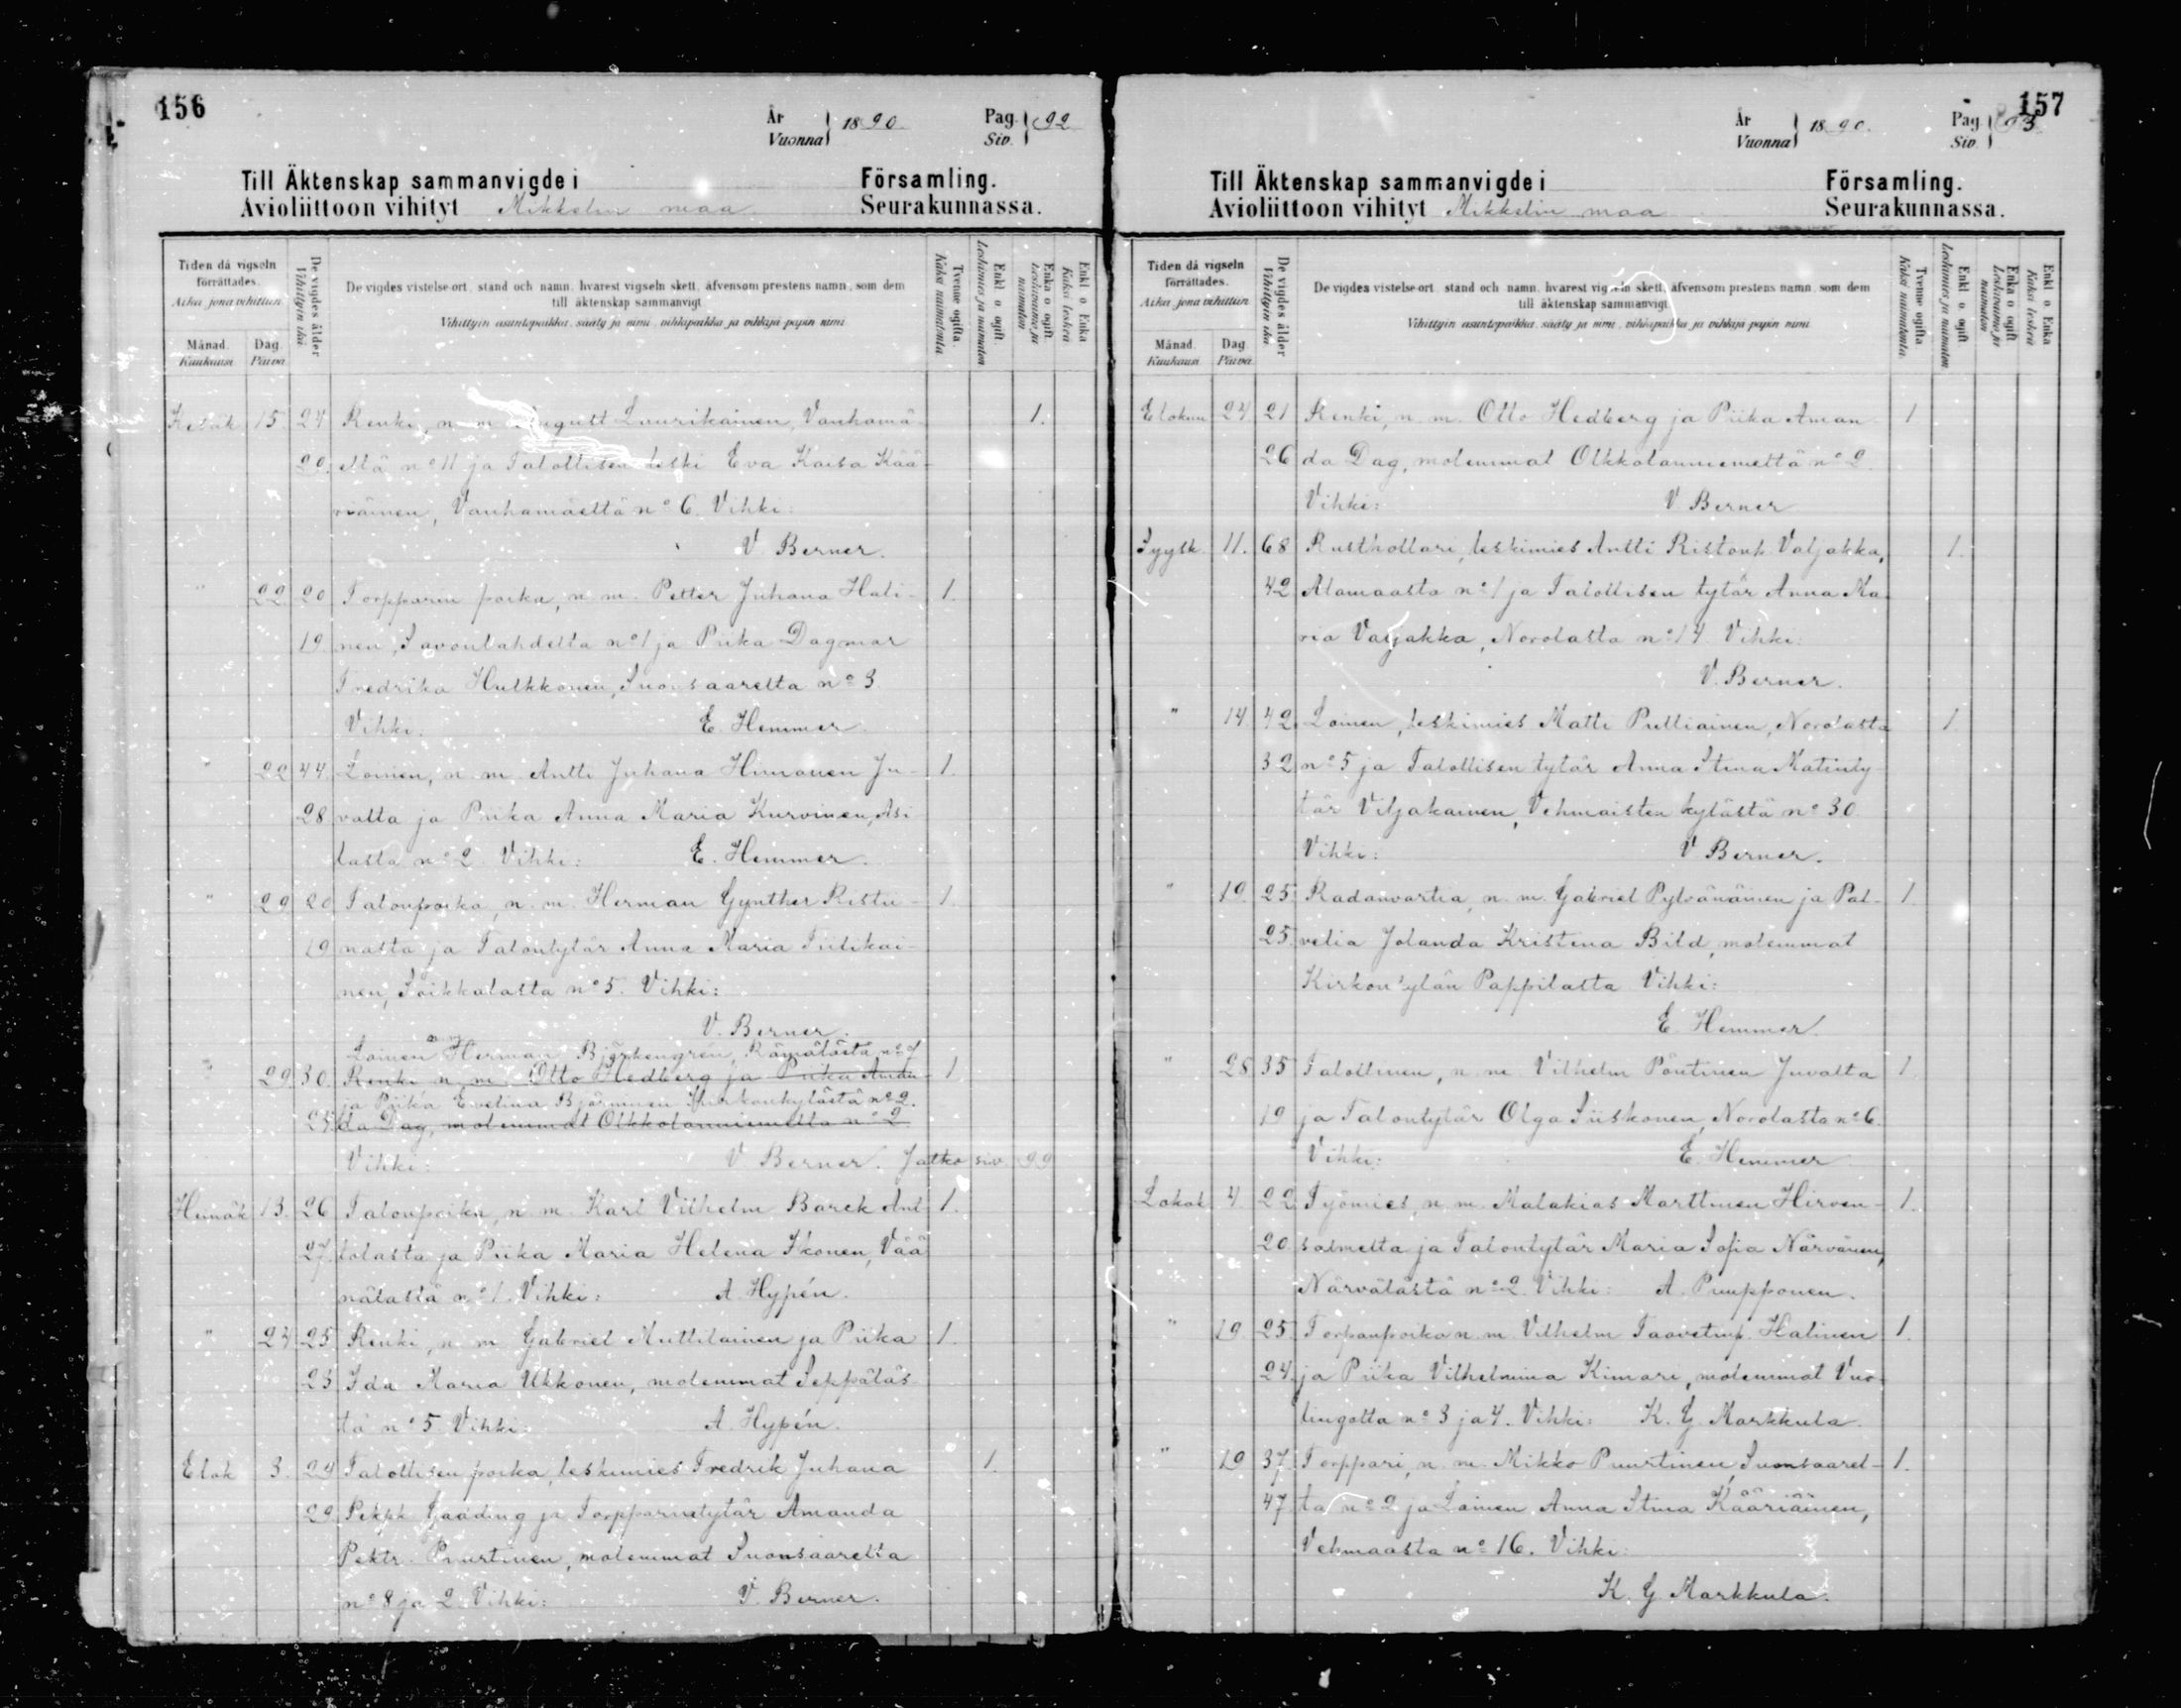 156
År Vuonna } 1890.
Pag. Siv. } 92
Till Äktenskap sammanvigde i Församling.
Avioliittoon vihityt Mikkelin maa Seurakunnassa.
Tiden då vigseln förrättades.
Aika, jona vihittiin
Månad. Kuukausi
Dag. Päivä
De vigdes ålder
Vihittyin ikä
De vigdes vistelse-ort, stånd och namn, hvarest vigseln skett, äfvensom prestens namn, som dem till äktenskap sammanvigt.
Vihittyin asuntopaikka, sääty ja nimi, vihkipaikka ja vihkijä-papin nimi
Tvenne ogifta.
Kaksi naimatonta
Enkl. o. ogift.
Leskimies ja naimaton
Enka o. ogift.
Leskivaimo ja naimaton
Enkl. o. Enka
Kaksi leskeä
Kesäk 15. 24 Renki, n. m. August Laurikainen, Vanhamä- 1.
20. eltä nº 11 ja Talollisen leski Eva Kaisa Kää-
riäinen, Vanhamäeltä nº 6. Vihki:
V. Berner.
" 22 20 Torpparin poika, n. m. Petter Juhana Hali- 1.
19. nen, Savonlahdelta nº 1 ja Piika Dagmar
Fredrika Hulkkonen, Suonsaarelta nº 3
Vihki: E. Hemmer
" 22 44 Loinen, n. m. Antti Juhana Himanen Ju- 1.
28 valta ja Piika Anna Maria Kurvinen, Asi
lasta nº 2. Vihki: E. Hemmer.
" 29 20 Talonpoika, n. m. Herman Gynther Ristii- 1.
19 nasta ja Talontytär Anna Maria Tiilikai-
nen, Soikkalasta nº 5. Vihki:
V. Berner.
Loinen n. m. Herman Björkengrén, Rämälästä nº 7
" 29 30. Renki n. m. Otto Hedberg ja Piika Aman- 1
ja Piika Evelina Björninen Kirkonkylästä nº 2.
25 da Dag, molemmat Olkkolanniemeltä nº 2
Vihki: V. Berner. Jatko siv. 99
Heinäk 13. 26 Talonpoika, n. m. Karl Vilhelm Barck Ant 1.
27. tolasta ja Piika Maria Helena Ikonen, Vää
nälästä nº 1. Vihki: A. Hypén.
" 24 25 Renki, n. m. Gabriel Muttilainen ja Piika 1.
23 Ida Maria Ukkonen, molemmat Seppäläs-
tä nº 5. Vihki: A. Hypén.
Elok 3. 24 Talollisen poika, leskimies Fredrik Juhana 1.
29 Gaading ja Torpparintytär Amanda
Pektr. Puurtinen, molemmat Suonsaarelta
nº 8 ja 2. Vihki: V. Berner.
157
År Vuonna } 1890.
Pag. Siv. } 93
Till Äktenskap sammanvigde i Församling.
Avioliittoon vihityt Mikkelin maa Seurakunnassa.
Tiden då vigseln förrättades.
Aika, jona vihittiin
Månad. Kuukausi
Dag. Päivä
De vigdes ålder
Vihittyin ikä
De vigdes vistelse-ort, stånd och namn, hvarest vigseln skett, äfvensom prestens namn, som dem till äktenskap sammanvigt.
Vihittyin asuntopaikka, sääty ja nimi, vihkipaikka ja vihkijä-papin nimi
Tvenne ogifta.
Kaksi naimatonta.
Enkl. o. ogift
Leskimies ja naimaton
Enka o. ogift
Leskivaimo ja naimaton
Enkl. o. Enka
Kaksi leskeä
Elokun 24 21 Renki, n. m. Otto Hedberg ja Piika Aman 1
26 da Dag, molemmat Olkkolanniemeltä nº 2.
Vihki: V. Berner
Syysk. 11. 68 Rusthollari, leskimies Antti Ristonp. Valjakka, 1.
42 Alamaasta nº 1 ja Talollisen tytär Anna Ma
ria Valjakka, Norolasta nº 14. Vihki:
V. Berner.
" 14 42. Loinen, leskimies Matti Pulliainen, Norolasta 1.
32 nº 5 ja Talollisen tytär Anna Stina Matinty
tär Viljakainen, Vehmaisten kylästä nº 30.
Vihki: V. Berner.
" 19. 25. Radanvartia, n. m. Gabriel Pylvänäinen ja Pal- 1.
25. velia Jolanda Kristina Bild, molemmat
Kirkonkylän Pappilasta Vihki:
E. Hemmer.
" 28 35 Talollinen, n. m. Vilhelm Pöntinen Juvalta 1
19 ja Talontytär Olga Siiskonen, Norolasta nº 6.
Vihki: E. Hemmer
Lokak 4 22. Työmies, n. m. Malakias Marttinen Hirven- 1.
20. salmelta ja Talontytär Maria Sofia Närvänen,
Närvälästä nº 2. Vihki: A. Puupponen.
" 19. 25. Torpanpoika n. m. Vilhelm Taavetinp. Halinen 1.
24. ja Piika Vilhelmina Kimari, molemmat Vuo-
lingolta nº 3 ja 4. Vihki: K. G. Markkula.
" 19 37. Torppari, n. m. Mikko Puurtinen, Suonsaarel- 1.
47. ta nº 2 ja Loinen Anna Stina Kääriäinen,
Vehmaasta nº 16. Vihki:
K. G Markkula.